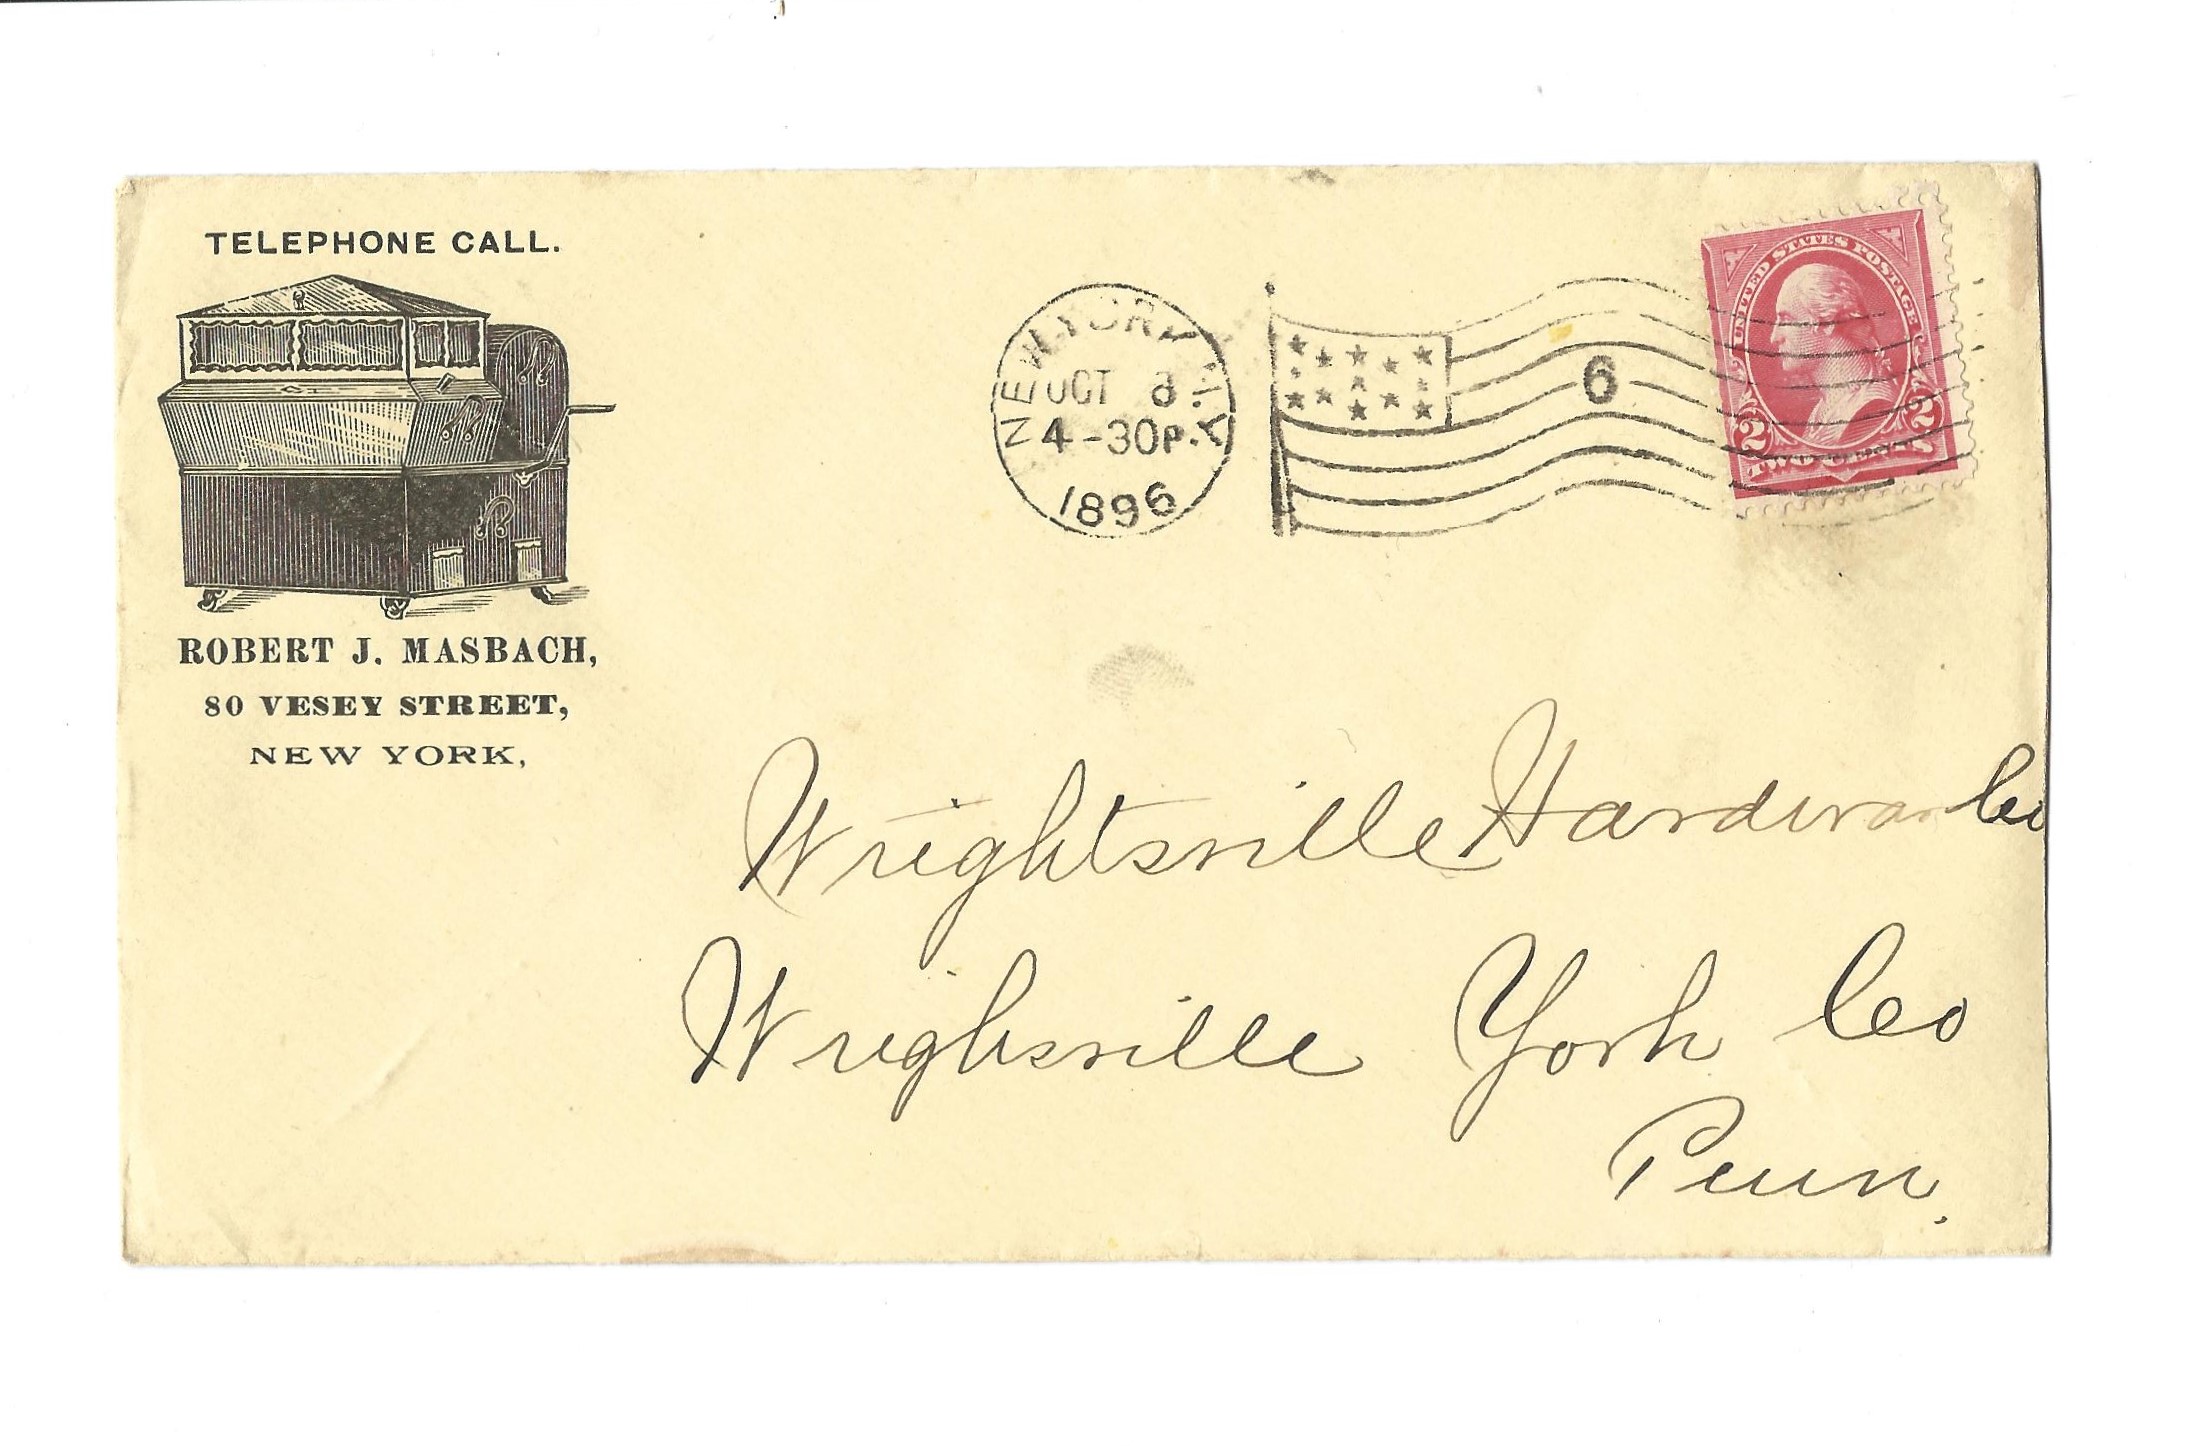 TELEPHONE CALL.
ROBERT J. MASBACH,
80 VESEY STREET,
NEW YORK,
NEW YORK N.Y.
OCT
4-30P.
1896
6
UNITED STATES POSTAGE
2 2
TWO CENTS
Wrightsville Hardwar Co
Wrighsville York Co
Penn.